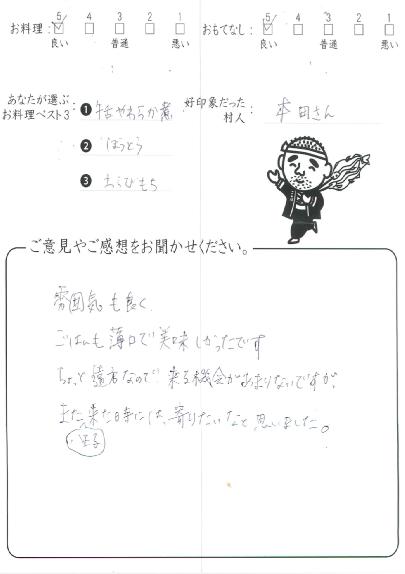 お料理： 5 4 3 2 1
良い 普通 悪い
おもてなし： 5 4 3 2 1
良い 普通 悪い
あなたが選ぶ
お料理ベスト3：
❶ 牛舌やわらか煮
❷ ほうとう
❸ わらびもち
好印象だった
村人：
本田さん
ご意見やご感想をお聞かせください。
雰囲気も良く、
ごはんも薄口で美味しかったです
ちょっと遠方なので、来る機会があまりないですが、
また来た時には、寄りたいなと思いました。